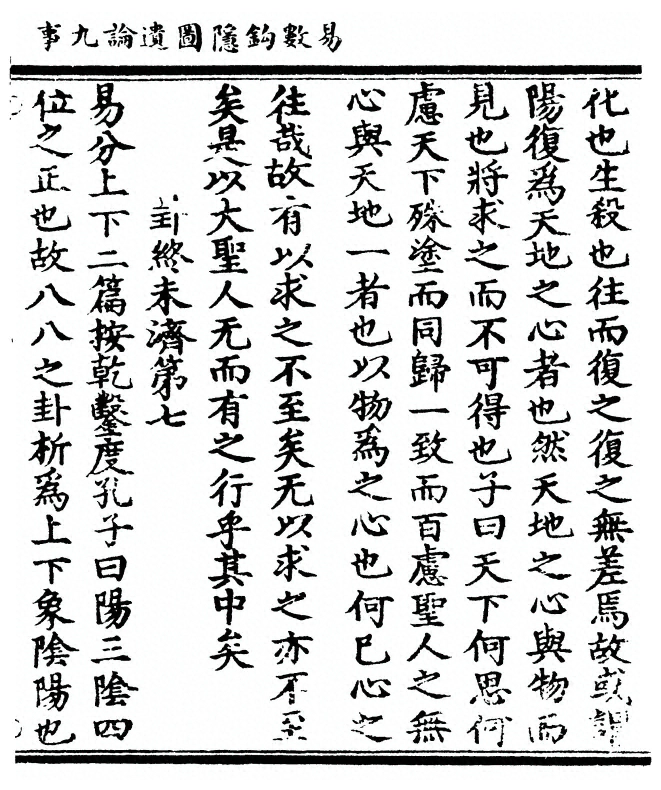 易數鈎隱圖遺論九事
化也生殺也往而復之復之無差焉故或謂
陽復爲天地之心者也然天地之心與物而
見也將求之而不可得也子曰天下何思何
慮天下殊塗而同歸一致而百慮聖人之無
心與天地一者也以物爲之心也何巳心之
往哉故有以求之不至矣无以求之亦不至
矣是以大聖人无而有之行乎其中矣
卦終未濟第七
易分上下二篇按乾鑿度孔子曰陽三陰四
位之正也故八八之卦析爲上下象陰陽也